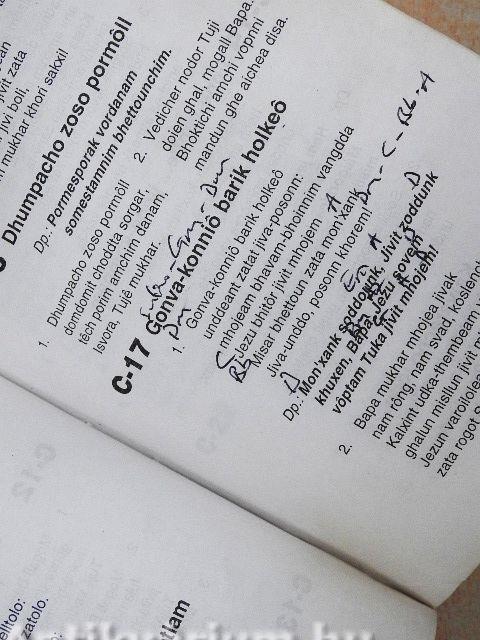 jivit zata
jivi boli,
mukhar khori sakxil
Dhumpacho zoso pormôll
Dp.: Pormesporak vordanam
somestamniim bhettounchim.
1. Dhumpacho zoso pormôll
domdomit choddta sorgar,
têch porim amchim danam,
Isvora, Tujê mukhar.
2. Vedicher nodor Tuji
doien ghal, mogall Bapa.
Bhoktichi amchi vopnni
mandun ghe aichea disa.
C-17 Gonva-konniô barik holkeô
1. Gonva-konniô barik holkeô
unddeant zatat jiva-posonn:
mhojeam bhavam-bhoinnim vangdda
Jezu bhitôr jivit mhojem A
Misar bhettoun zata mon'xank
Jiva-unddo, posonn khorem!
C - Bb - A
C
Bb
D
D
Dp.: Mon'xank soddounk, jivit zoddunk
khuxen, Bapa, Jezu sovem
voptam Tuka jivit mhojem!
2. Bapa mukhar mhojea jivak
nam rông, nam svad, koslench
Kalxint udka-thembeam
ghalun misllun jivit
Jezun varoilolea
zata rogot
C-12
elltolo:
zatolo.
tlam